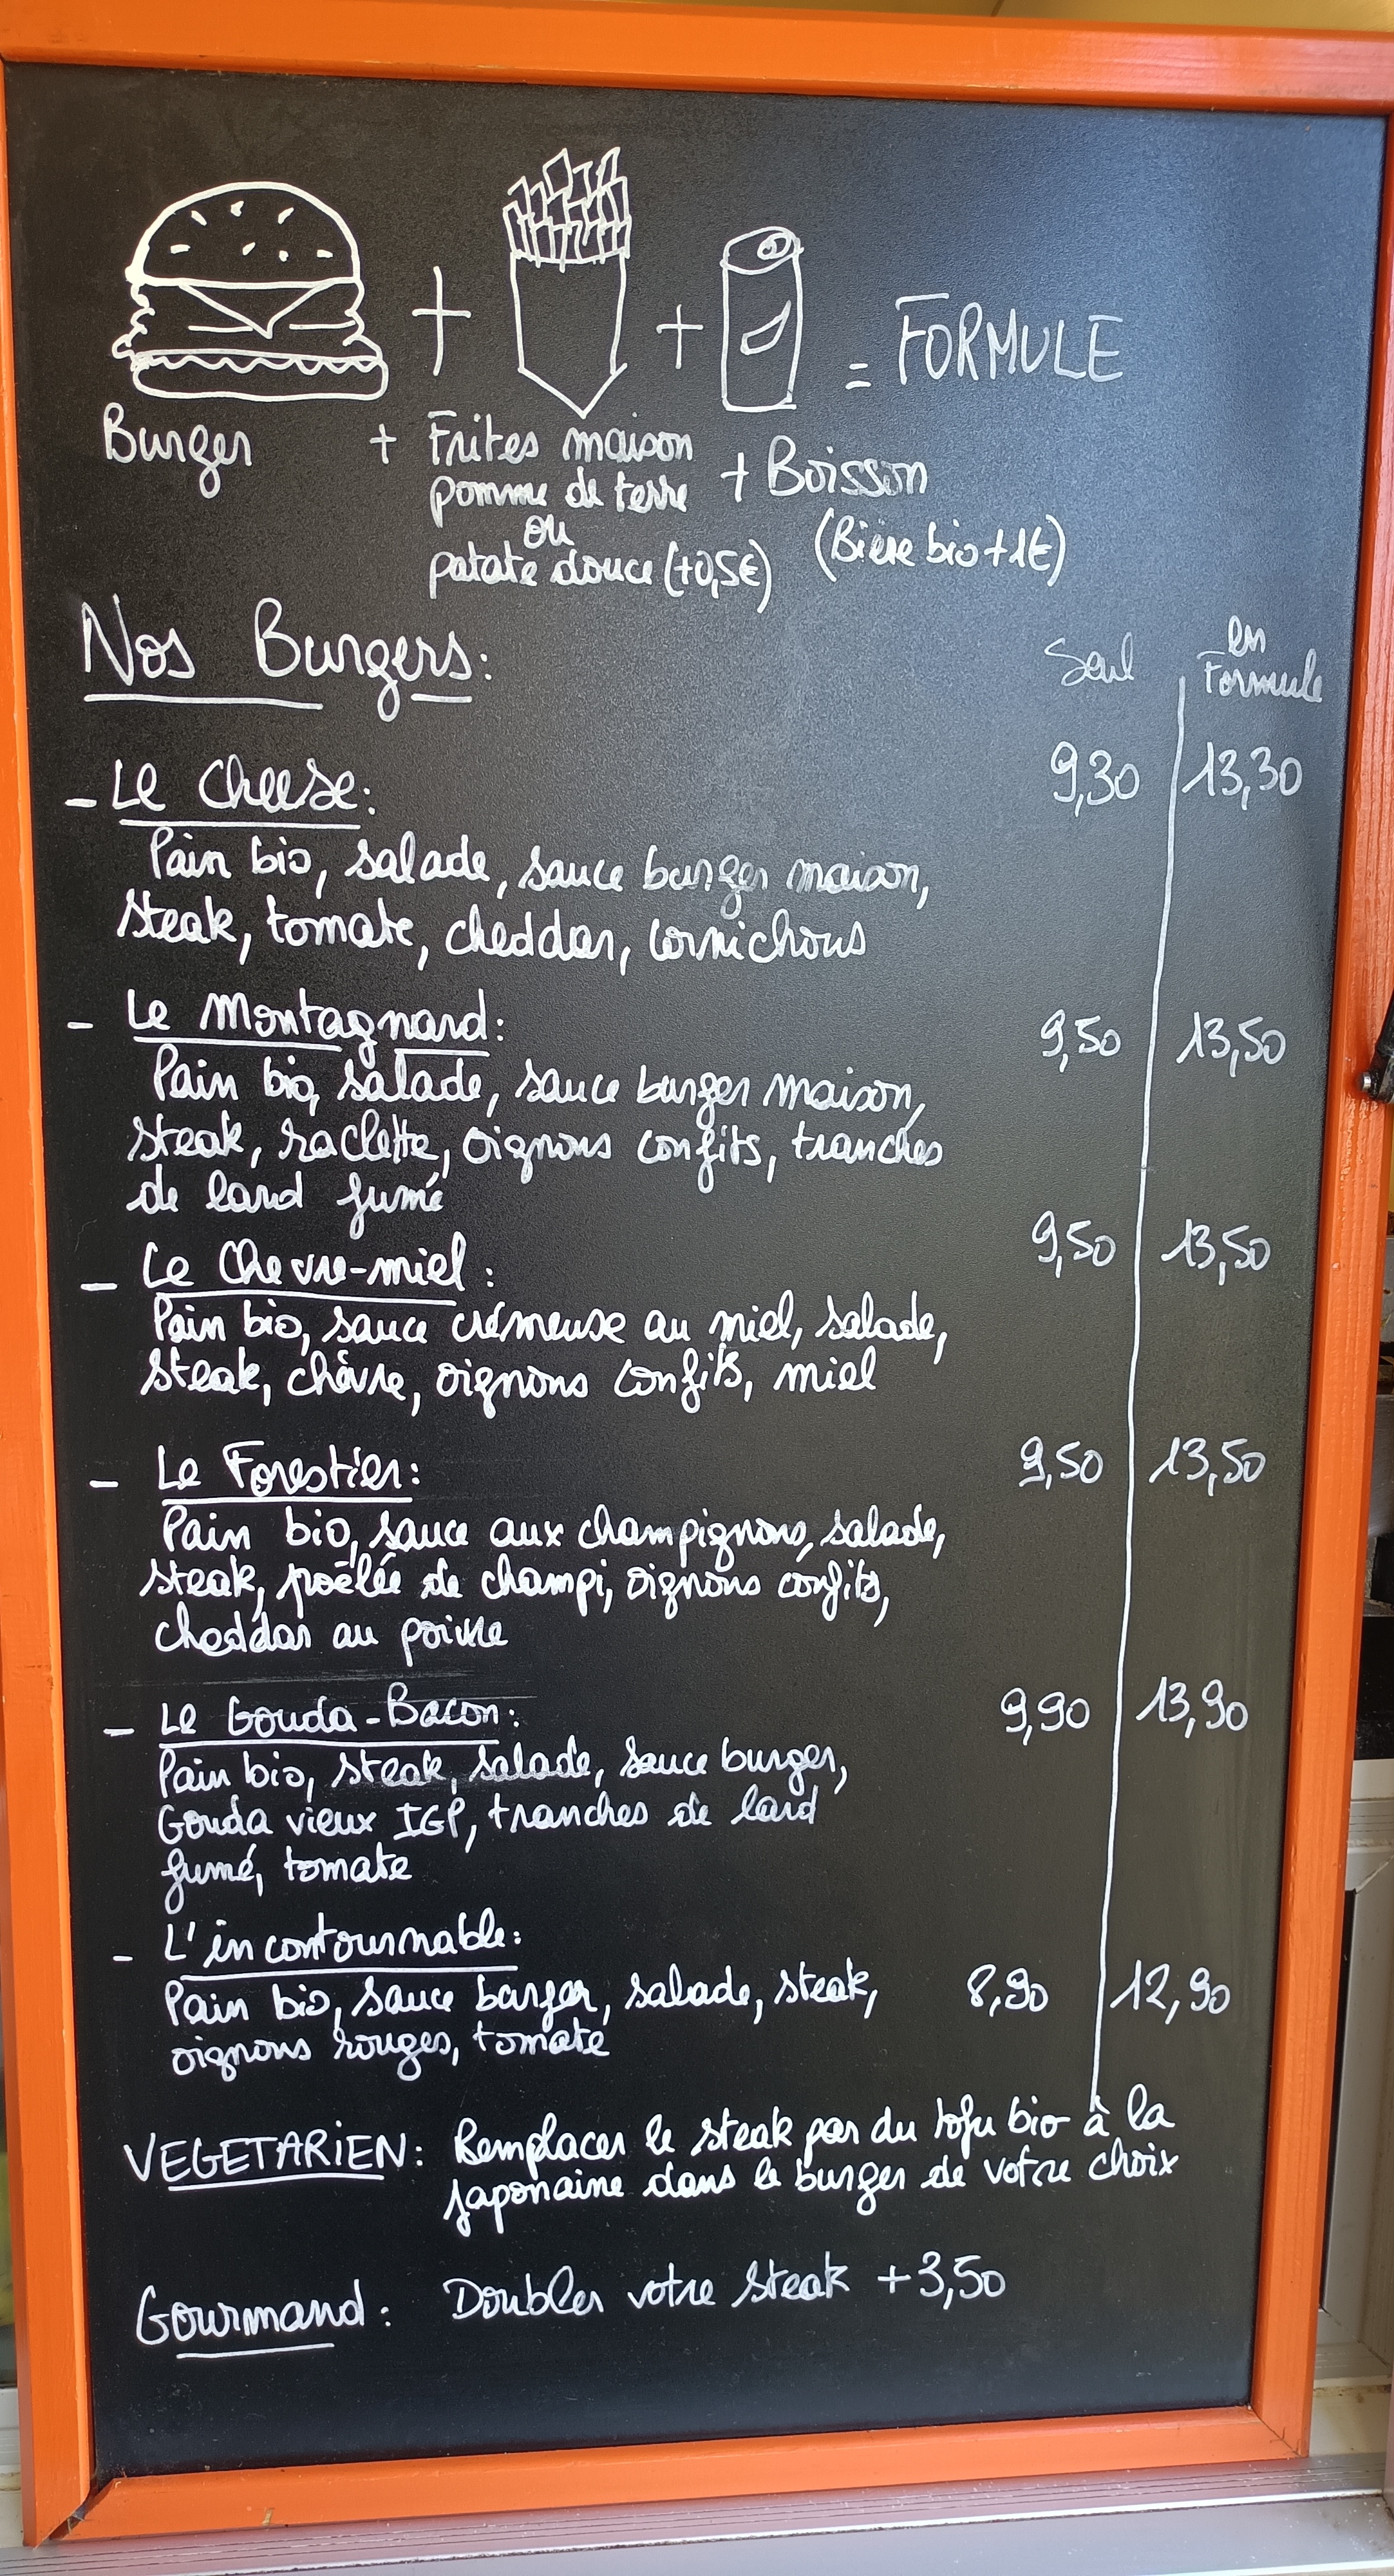 = FORMULE
Burger + Frites maison + Boisson
pomme de terre
ou
patate douce (+0,5€) (Bière bio +1€)
Nos Burgers: Seul en Formule
- Le Cheese: 9,30 13,30
Pain bio, salade, sauce burger maison,
steak, tomate, cheddar, cornichons
- Le Montagnard: 9,50 13,50
Pain bio, salade, sauce burger maison,
steak, raclette, oignons confits, tranches
de lard fumé
- Le Chevre-miel: 9,50 13,50
Pain bio, sauce crémeuse au miel, salade,
steak, chèvre, oignons confits, miel
- Le Forestier: 9,50 13,50
Pain bio, sauce aux champignons, salade,
steak, poêlée de champi, oignons confits,
cheddar au poivre
- Le Gouda-Bacon: 9,90 13,90
Pain bio, steak, salade, sauce burger,
Gouda vieux IGP, tranches de lard
fumé, tomate
- L'incontournable:
Pain bio, sauce burger, salade, steak, 8,90 12,90
oignons rouges, tomate
VEGETARIEN: Remplacer le steak par du tofu bio à la
japonaine dans le burger de votre choix
Gourmand: Doubler votre steak +3,50